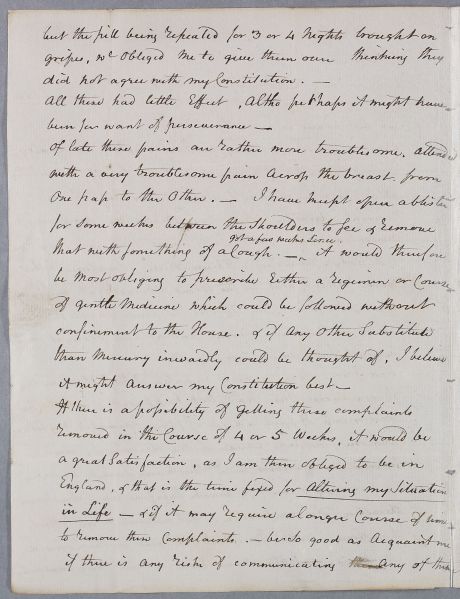 but the pill being repeated for 3 or 4 Nights brought on
gripes, wc. Obliged me to give them over thinking they
did not agree with my Constitution. —
All these had little Effect, Altho perhaps it might have
been for want of perseverance —
Of late these pains are rather more troublesome, attended
with a very troublesome pain Across the breast from
One pap to the Other. — I have kept open a blister
for some weeks between the Shoulders to see & remove
got a few weeks since.
that with something of a Cough. — it would therefore
be most obliging to prescribe Either a Regimen or Course
of gentle Medicine which could be followed without
confinement to the House. & if Any Other Substitute
than Mercury inwardly could be thought of, I believe
it might Answer my Constitution best —
If there is a possibility of getting these complaints
removed in the Course of 4 or 5 Weeks, it would be
a great Satisfaction, as I am then obliged to be in
England, & that is the time fixed for Altering my Situation
in Life — & if it may require a longer Course of time
to remove these Complaints. — be so good as Acquaint me
if there is any risk of communicating Any of them